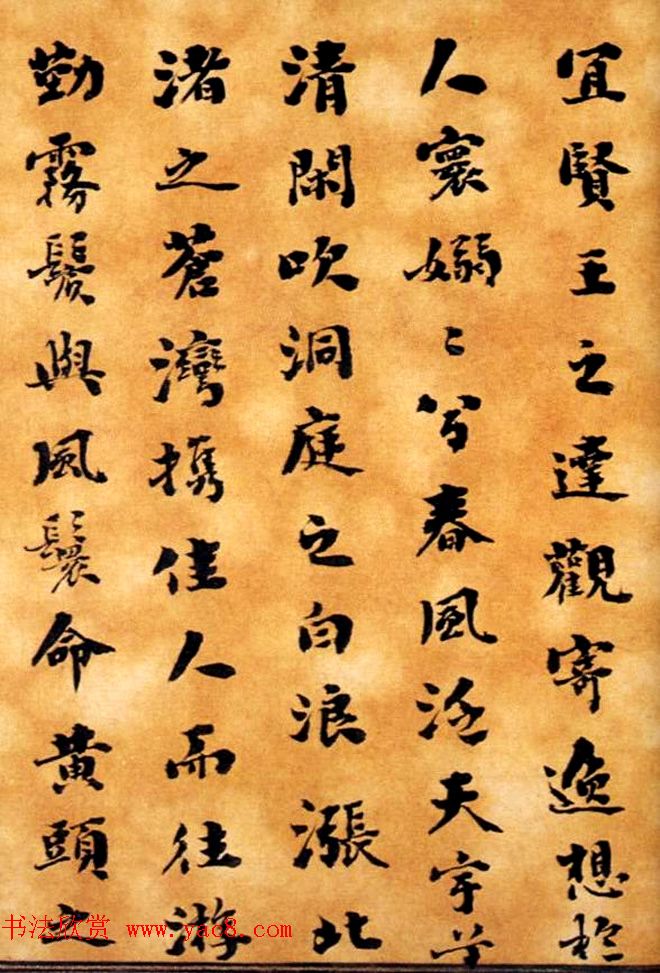 宜賢王之達觀寄逸想於
人寰嫋〻兮春風泛天宇兮
清閑吹洞庭之白浪漲北
渚之蒼灣携佳人而往游
勤霧鬢與風鬟命黄頭之
书法欣赏 www.yac8.com